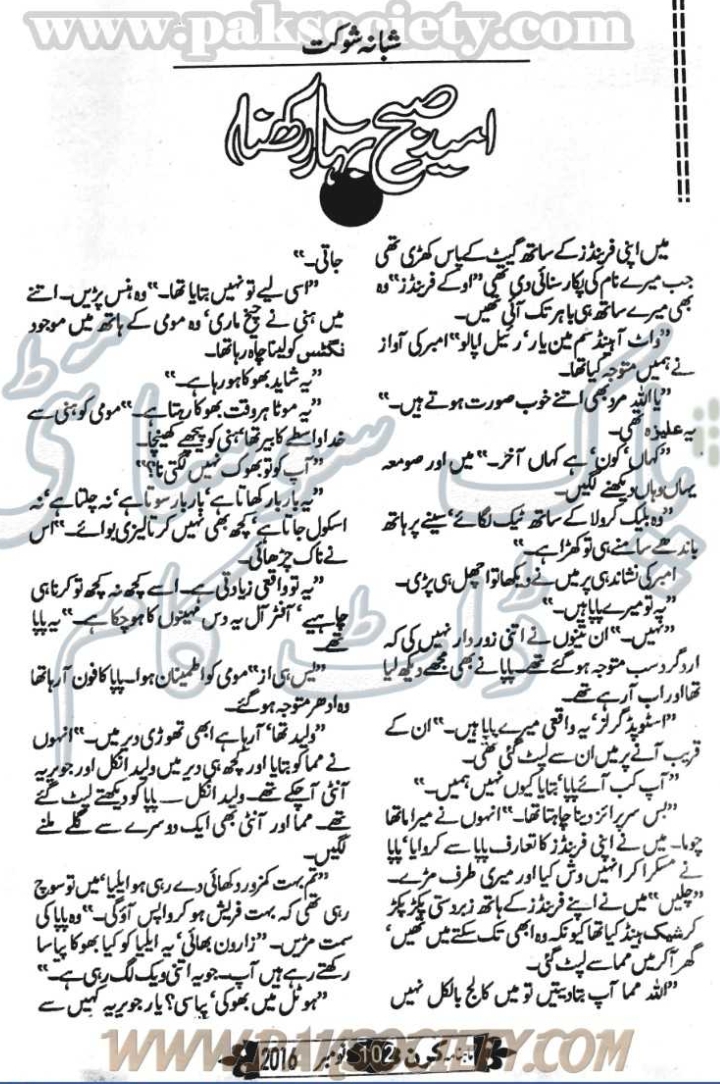 www.paksociety.com
شبانہ شوکت
امید صبح بہار رکھنا
میں اپنی فرینڈز کے ساتھ گیٹ کے پاس کھڑی تھی
جب میرے نام کی پکار سنائی دی تھی ”اوکے فرینڈز“ وہ
بھی میرے ساتھ ہی باہر تک آئی تھیں۔
”واٹ آ ہینڈسم مین یار‘ رئیل اپالو“ امبر کی آواز
نے ہمیں متوجہ کیا تھا۔
”یا اللہ مرد بھی اتنے خوب صورت ہوتے ہیں۔“
یہ علیزہ تھی۔
”کہاں‘ کون‘ ہے کہاں آخر۔“ میں اور صومعہ
یہاں وہاں دیکھنے لگیں۔
”وہ بلیک کرولا کے ساتھ ٹیک لگائے‘ سینے پر ہاتھ
باندھے سامنے ہی تو کھڑا ہے۔“
امبر کی نشاندہی پر میں نے دیکھا تو اچھل ہی پڑی۔
”یہ تو میرے پاپا ہیں۔“
”نہیں۔“ ان تینوں نے اتنی زور دار نہیں کی کہ
ارد گرد سب متوجہ ہو گئے تھے۔ پاپا نے بھی مجھے دیکھ لیا
تھا اور اب آ رہے تھے۔
”اسٹوپڈ گرلز‘ یہ واقعی میرے پاپا ہیں۔“ ان کے
قریب آنے پر میں ان سے لپٹ گئی تھی۔
”آپ کب آئے پاپا‘ بتایا کیوں نہیں ہمیں۔“
”بس سرپرائز دینا چاہتا تھا۔“ انہوں نے میرا ماتھا
چوما۔ میں نے اپنی فرینڈز کا تعارف پاپا سے کروایا‘ پاپا
نے مسکرا کر انہیں وش کیا اور میری طرف مڑے۔
”چلیں“ میں نے اپنے فرینڈز کے ہاتھ زبردستی پکڑ پکڑ
کر شیک ہینڈ کیا تھا کیونکہ وہ ابھی تک سکتے میں تھیں‘
گھر آ کر میں مما سے لپٹ گئی۔
”اللہ مما آپ بتا دیتیں تو میں کالج بالکل نہیں
جاتی۔“
”اسی لیے تو نہیں بتایا تھا۔“ وہ ہنس پڑیں۔ اتنے
میں ہنی نے چیخ ماری‘ وہ مومی کے ہاتھ میں موجود
نگٹس کو لینا چاہ رہا تھا۔
”یہ شاید بھوکا ہو رہا ہے۔“
”یہ موٹا ہر وقت بھوکا رہتا ہے۔“ مومی کو ہنی سے
خدا واسطے کا بیر تھا‘ ہنی کو پیچھے کھینچا۔
”آپ کو تو بھوک نہیں لگتی نا؟“
”یہ بار بار کھاتا ہے‘ بار بار سوتا ہے‘ نہ چلتا ہے‘ نہ
اسکول جاتا ہے‘ کچھ بھی نہیں کرتا لیزی بوائے۔“ اس
نے ناک چڑھائی۔
”یہ تو واقعی زیادتی ہے۔ اسے کچھ نہ کچھ تو کرنا ہی
چاہیے‘ آفٹر آل یہ دس مہینوں کا ہو چکا ہے۔“ یہ پاپا
تھے۔
”یس ہی از“ مومی کو اطمینان ہوا۔ پاپا کا فون آ رہا تھا
وہ ادھر متوجہ ہو گئے۔
”ولید تھا‘ آ رہا ہے ابھی تھوڑی دیر میں۔“ انہوں
نے مما کو بتایا اور کچھ ہی دیر میں ولید انکل اور جویریہ
آنٹی آ چکے تھے۔ ولید انکل ــــ پاپا کو دیکھتے لپٹ گئے
تھے۔ مما اور آنٹی بھی ایک دوسرے سے گلے ملنے
لگیں۔
”تم بہت کمزور دکھائی دے رہی ہو ایلیا‘ میں تو سوچ
رہی تھی کہ بہت فریش ہو کر واپس آؤ گی۔“ وہ پاپا کی
سمت مڑیں۔ ”زارون بھائی‘ یہ ایلیا کو کیا بھوکا پیاسا
رکھتے رہے ہیں آپ۔ جو یہ اتنی ویک لگ رہی ہے۔“
”ہوٹل میں بھوکی‘ پیاسی؟ یار جویریہ کہیں سے
ماہنامہ کرن 102 نومبر 2016
WWW.PAKSOCIETY.COM
پاک سوسائٹی
ڈاٹ کام